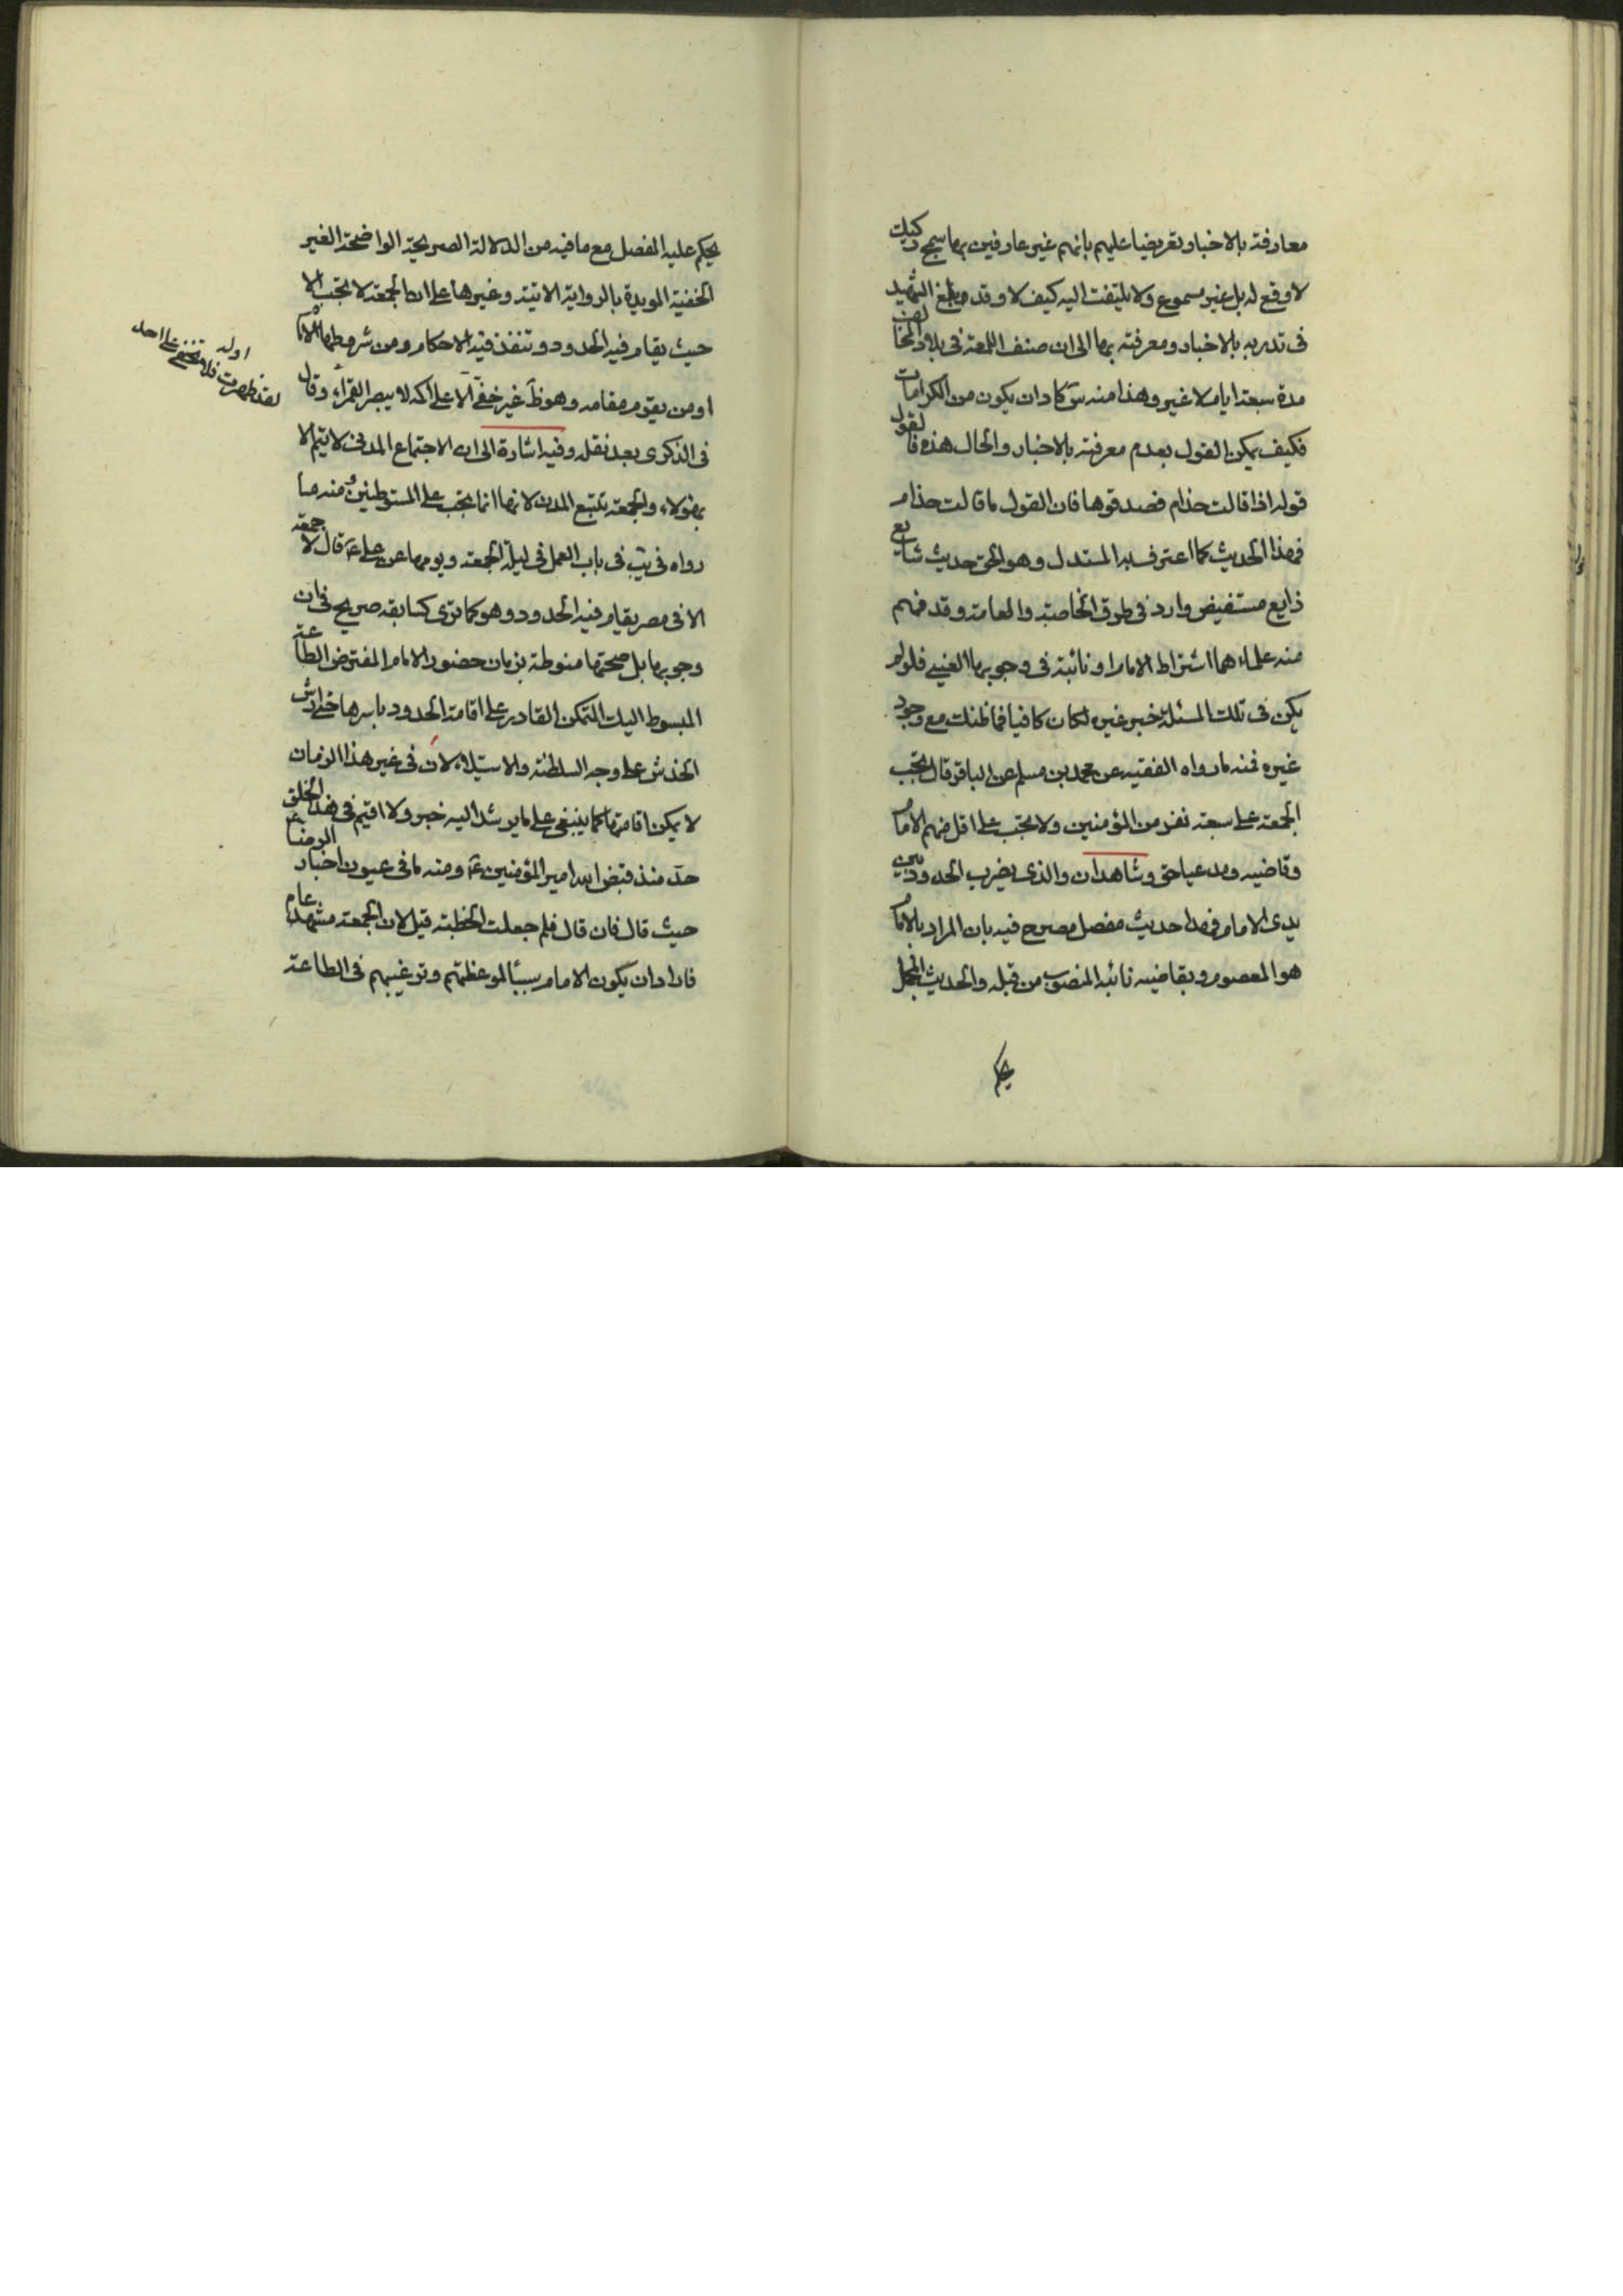 معارفته بالاخبار وتعريضا عليهم بانهم غير عارفين بها سمج ركيك
لا وقع له بل غير مسموع ولا يلتفت اليه كيف لا وقد بلغ الشهيد
فى تدربه بالاخبار ومعرفته بها الى ان صنف اللمعة فى بلاد المخالفين
مدة سبعة ايام لا غير وهذا منه س كاد ان يكون من الكرامات
فكيف يمكن القول بعدم معرفته بالاخبار والحال هذه فالقول
قوله اذا قالت حذام فصدقوها فان القول ما قالت حذام
فهذا الحديث كما اعترف به المستدل وهو الحق حديث شايع
ذايع مستفيض وارد فى طرق الخاصة والعامة وقد فهم
منه علماءهما اشتراط الامام او نائبه فى وجوبها العينى فلو لم
يكن فى تلك المسئلة خبر غيره لكان كافيا فما ظنك مع وجود
غيره فمنه ما رواه الفقيه عن محمد بن مسلم عن الباقر قال تجب
الجمعة على سبعة نفر من المؤمنين ولا تجب على اقل منهم الامام
وقاضيه ومدعيا حق وشاهدان والذى يضرب الحدود بين
يدى الامام فهذا حديث مفصل مصرح فيه بان المراد بالامام
هو المعصوم وبقاضيه نائبه المنصوب من قبله والحديث المجمل
يحكم
يحكم عليه المفصل مع ما فيه من الدلالة الصريحة الواضحة الغير
الخفية المويدة بالرواية الاتية وغيرها على ان الجمعة لا تجب الا
حيث يقام فيه الحدود وتنفذ فيه الاحكام ومن شروطها الامام
او من يقوم مقامه وهو ظ غير خفى الا على اكمه لا يبصر القمراء وقال
فى الذكرى بعد نقله وفيه اشارة الى ان الاجتماع المدنى لا يتم الا
بهؤلاء والجمعة تتبع المدن لانها انما تجب على المستوطنين ومنه ما
رواه فى يب فى باب العمل فى ليلة الجمعة ويومها عن على ع قال لا جمعة
الا فى مصر يقام فيه الحدود وهو كما ترى كسابقه صريح فى ان
وجوبها بل صحتها منوطة بزمان حضور الامام المفترض الطاعة
المبسوط اليد المتمكن القادر على اقامة الحدود باسرها حتى ارش
الخدش على وجه السلطنة والاستيلاء لان فى غير هذا الزمان
لا يمكن اقامتها كما ينبغى على ما يرشد اليه خبر ولا اقيم فى هذا الخلق
حد منذ قبض الله امير المؤمنين ع ومنه ما فى عيون اخبار الرضا ع
حيث قال فان قال فلم جعلت الخطبة قيل لان الجمعة مشهد عام
فاراد ان يكون الامام سببا لموعظتهم وترغيبهم فى الطاعة
اوله
لقد ظهرت فلا تخفى على احد